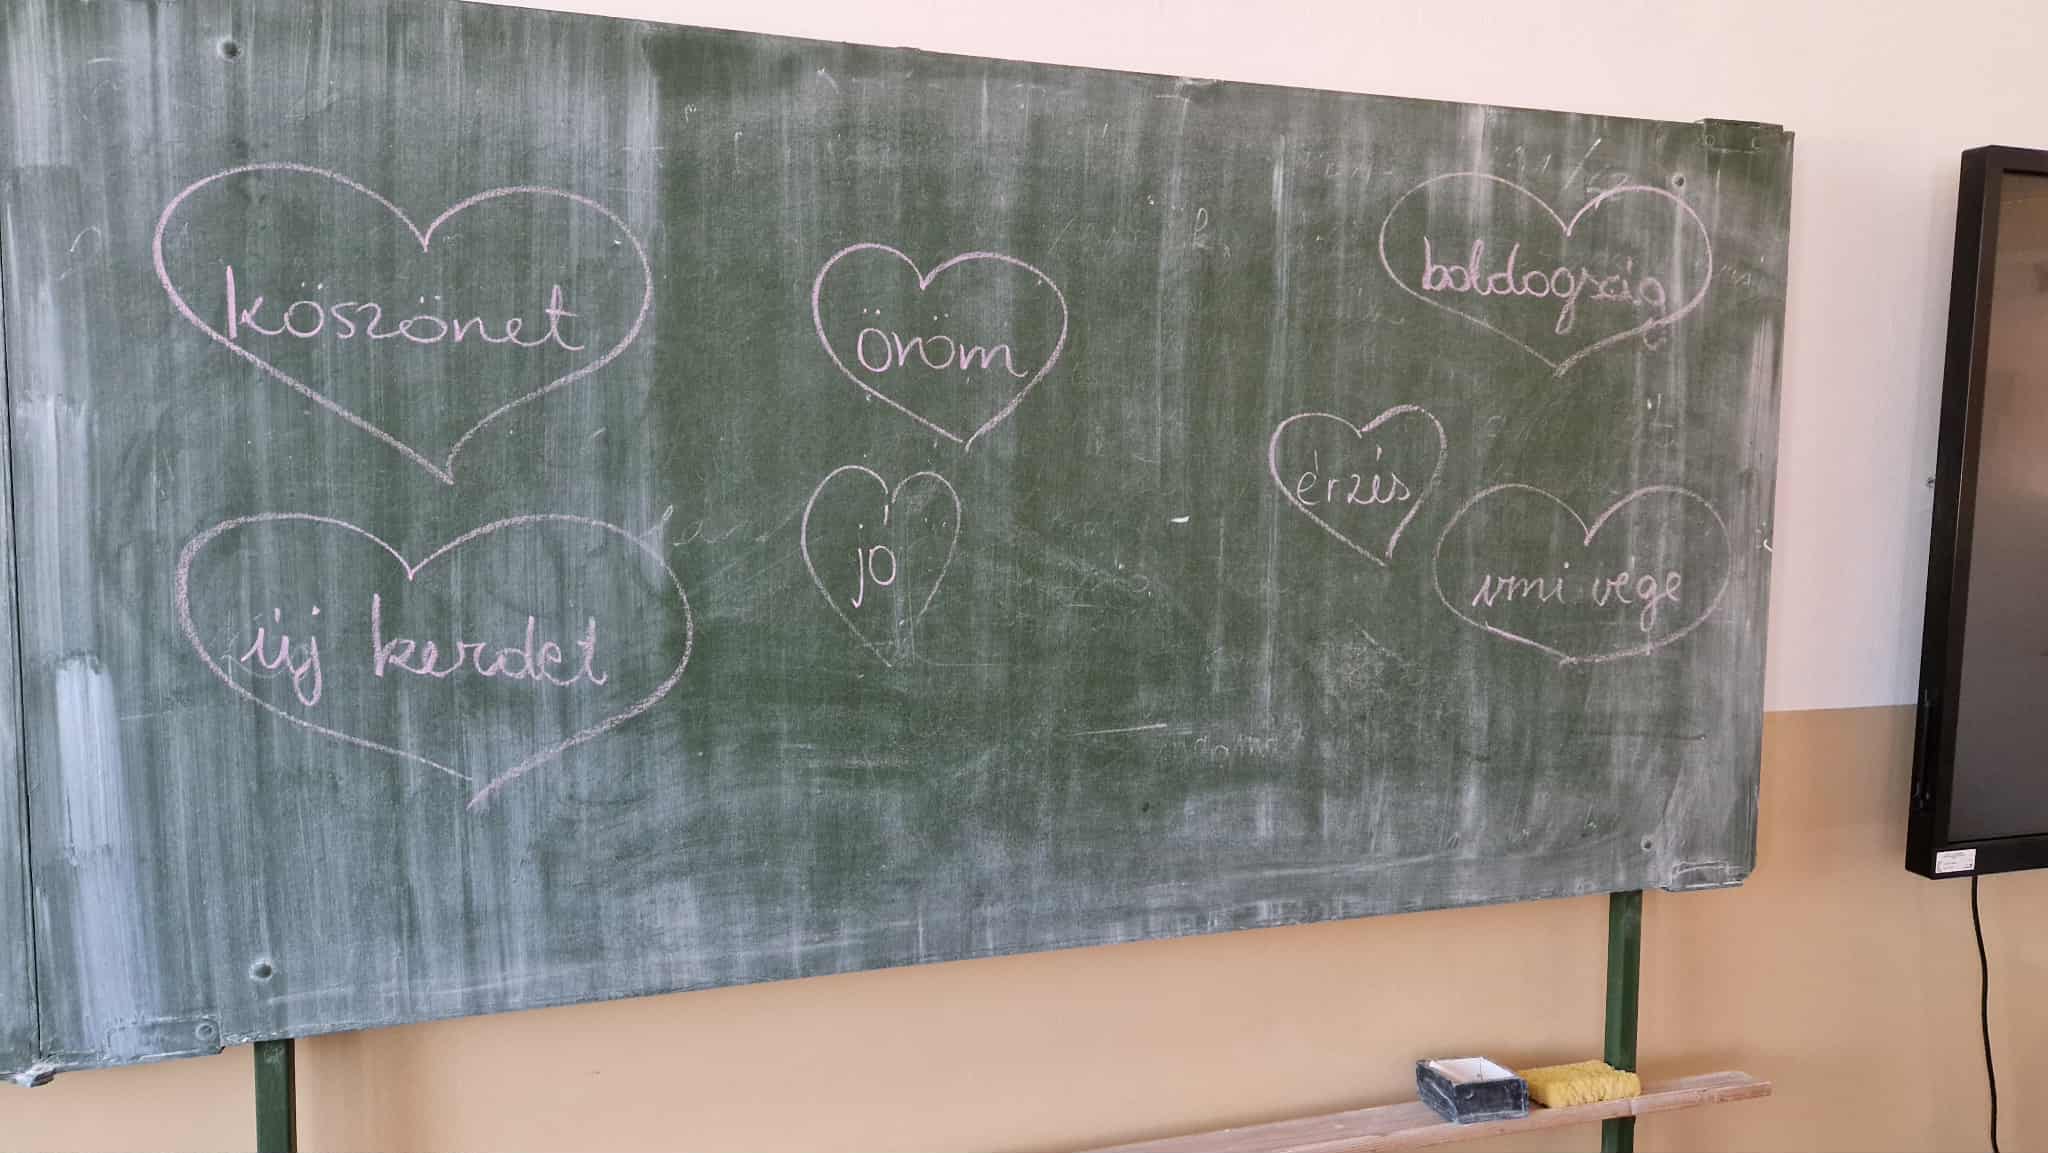 köszönet
öröm
boldogság
érzés
jó
új kerdet
vmi vége